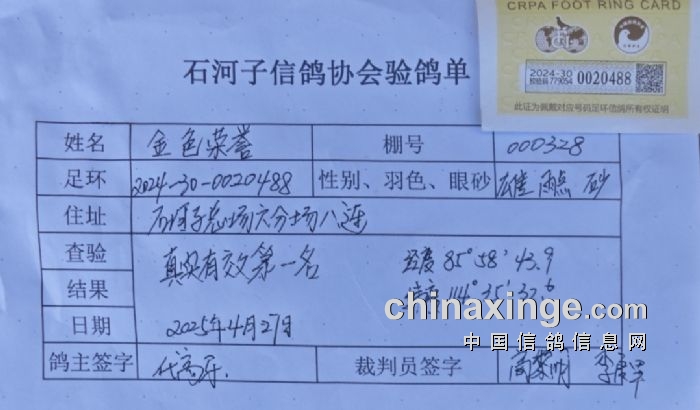 CRPA FOOT RING CARD
2024-30
校验码 779054
0020488
此证为佩戴对应号码足环信鸽所有权证明
石河子信鸽协会验鸽单
姓名 金色荣誉 棚号 000328
足环 2024-30-0020488 性别、羽色、眼砂 雄 雨点 砂
住址 石河子总场六分场八连
查验 真实有效第一名 经度 85°58'43.9
结果 44°35'37.6
日期 2025年4月27日
鸽主签字 裁判员签字
chinaxinge.com
中国信鸽信息网